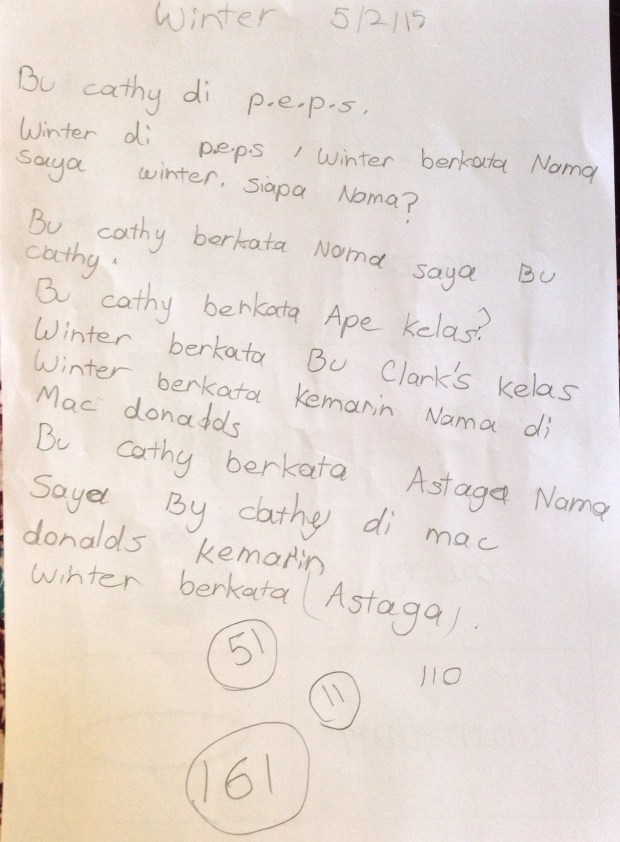 Winter 5/2/15
Bu cathy di p.e.p.s.
Winter di p.e.p.s, Winter berkata Nama
saya winter. siapa Nama?
Bu cathy berkata Nama saya Bu
cathy.
Bu cathy berkata Ape kelas?
Winter berkata Bu Clark's kelas
Winter berkata kemarin Nama di
Mac donadds
Bu cathy berkata Astaga Nama
Saya By cathy di mac
donalds kemarin
Winter berkata (Astaga).
51
11
110
161